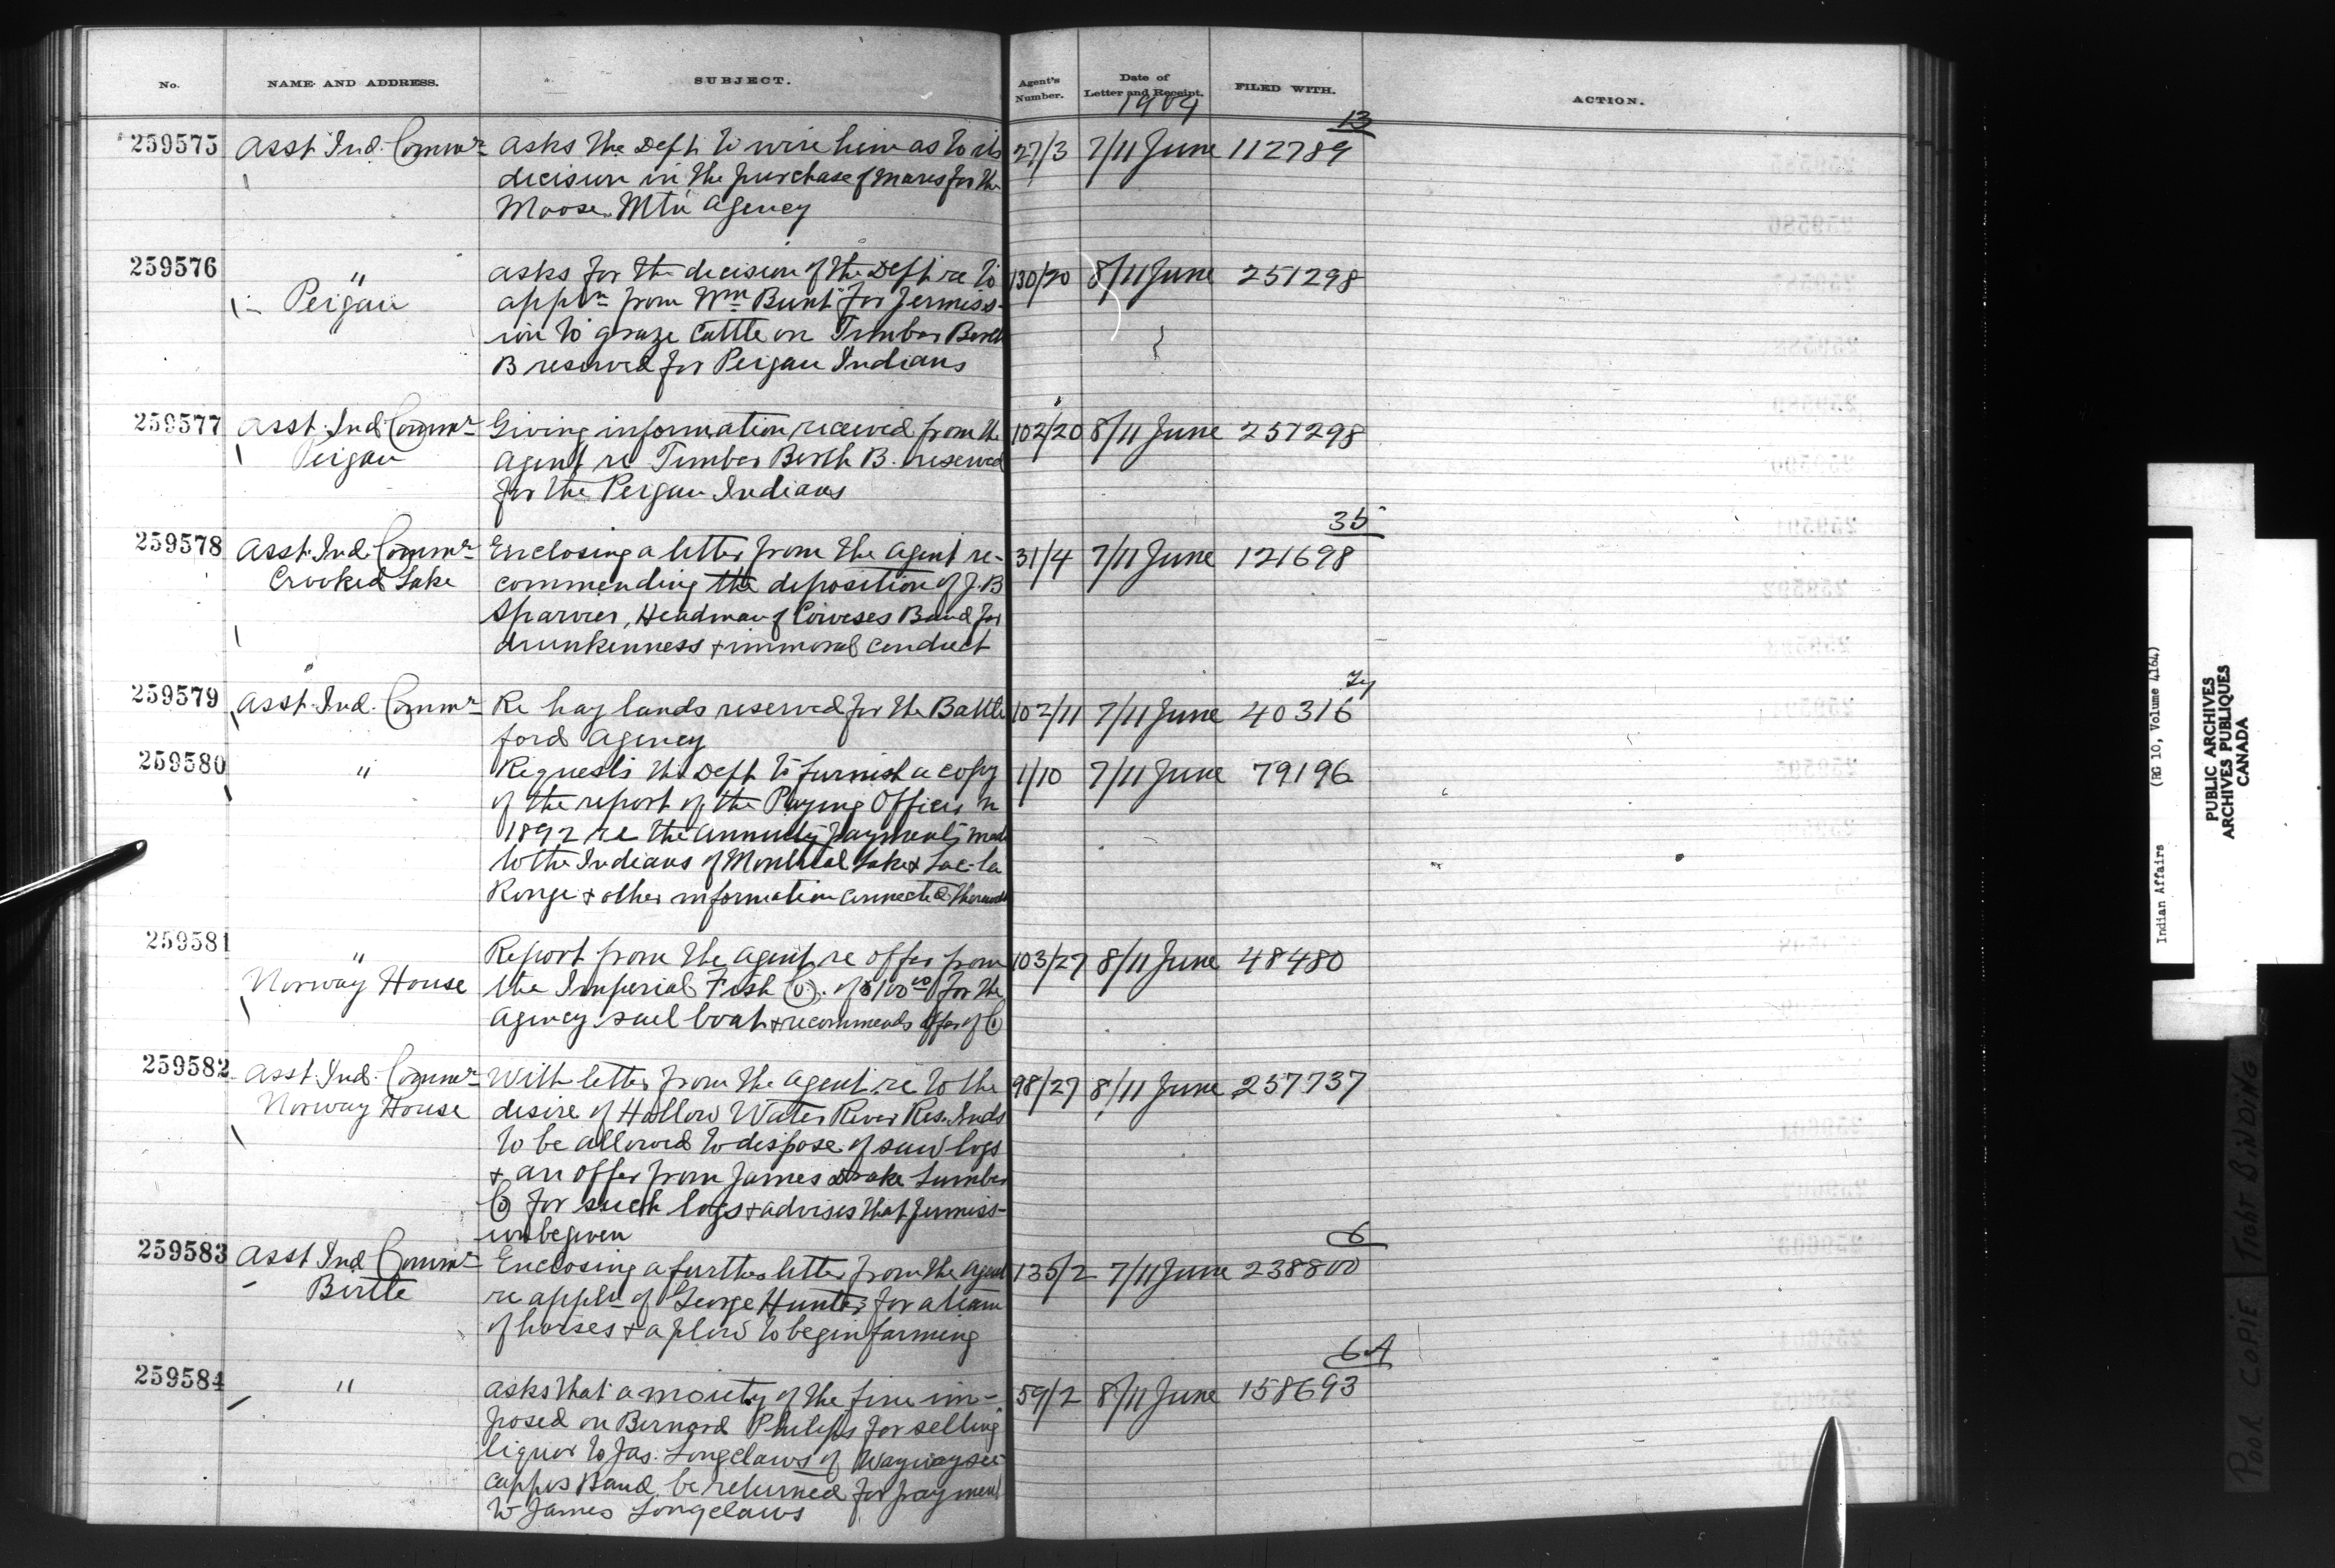 No. NAME AND ADDRESS. SUBJECT. Agent's Number. Date of Letter and Receipt. FILED WITH. ACTION.
1904
13
259575 Asst. Ind. Commr. Asks the Dept. to wire him as to its 27/3 7/11 June 112789
decision in the purchase of mares for the
Moose Mtn Agency
259576 " Asks for the decision of the Dept re to 130/20 8/11 June 251298
Peigan appln from Wm Bunt for permiss-
ion to graze cattle on Timber Berth
B reserved for Peigan Indians
259577 Asst. Ind. Commr. Giving information received from the 102/20 8/11 June 251298
Peigan Agent re Timber Berth B. reserved
for the Peigan Indians
35
259578 Asst. Ind. Commr. Enclosing a letter from the Agent re- 31/4 7/11 June 121698
Crooked Lake commending the deposition of J.B
Sparvier, Headman of Coweses Band for
drunkenness & immoral conduct
259579 Asst. Ind. Commr. Re hay lands reserved for the Battle 102/11 7/11 June 40316
ford Agency
259580 " Requests the Dept to furnish a copy 1/10 7/11 June 79196
of the report of the Paying Officer in
1892 re the annuity payments made
to the Indians of Montreal Lake & Lac la
Ronge & other information connected therewith
259581 " Report from the Agent re offer from 103/27 8/11 June 48480
Norway House the Imperial Fish Co. of $100 00 for the
Agency sail boat & recommends offer of Co
259582 Asst. Ind. Commr. With letter from the Agent re to the 98/27 8/11 June 257737
Norway House desire of Hollow Water River Res. Inds
to be allowed to dispose of saw logs
& an offer from James Drake Lumber
Co for such logs & advises that permiss-
ion be given
6
259583 Asst Ind Commr Enclosing a further letter from the Agent 135/2 7/11 June 238800
Birtle re appln of George Hunter for a team
of horses & a plow to begin farming
6A
259584 " Asks that a moiety of the fine im- 59/2 8/11 June 158693
posed on Bernard Philips for selling
liquor to Jas. Longclaws of Waywaysee
cappos Band be returned for payment
to James Longclaws
Indian Affairs (RG 10, Volume 4164)
PUBLIC ARCHIVES
ARCHIVES PUBLIQUES
CANADA
POOR COPIE TIGHT BINDING